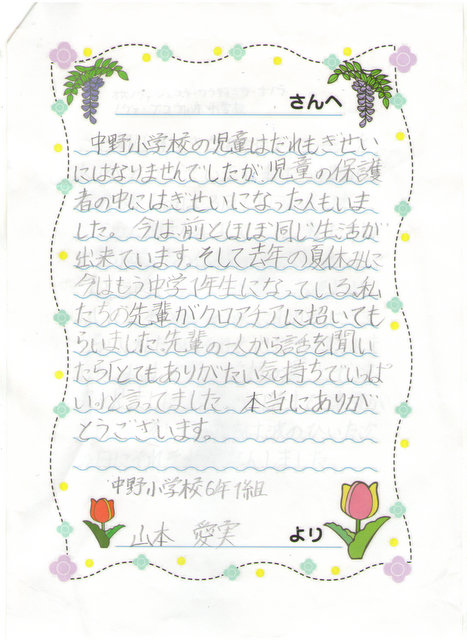 さんへ
中野小学校の児童はだれもぎせい
にはなりませんでしたが児童の保護
者の中にはぎせいになった人もいま
した。今は前とほぼ同じ生活が
出来ています。そして去年の夏休みに
今はもう中学1年生になっている、私
たちの先輩がクロアチアに招いても
らいました。先輩の一人から話を聞い
たら「とてもありがたい気持ちでいっぱ
い」と言ってました。本当にありが
とうございます。
中野小学校6年1組
山本 愛実 より